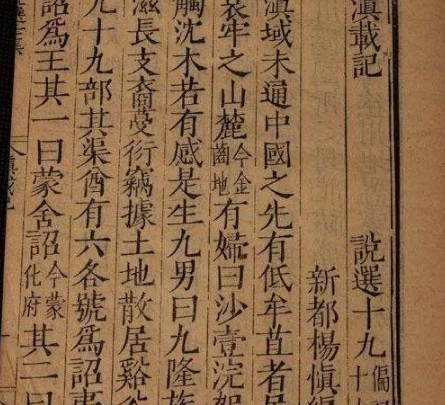 滇載記
說選十九偏
新都楊慎編
滇域未通中國之先有低牟苴者居
哀牢之山麓今金齒地有婦曰沙壹浣
觸沈木若有感是生九男曰九隆族
滋長支裔蔓衍竊據土地散居谿谷
九十九部其渠酋有六各號爲詔夷
詔爲王其一曰蒙舍詔今蒙化府其二曰